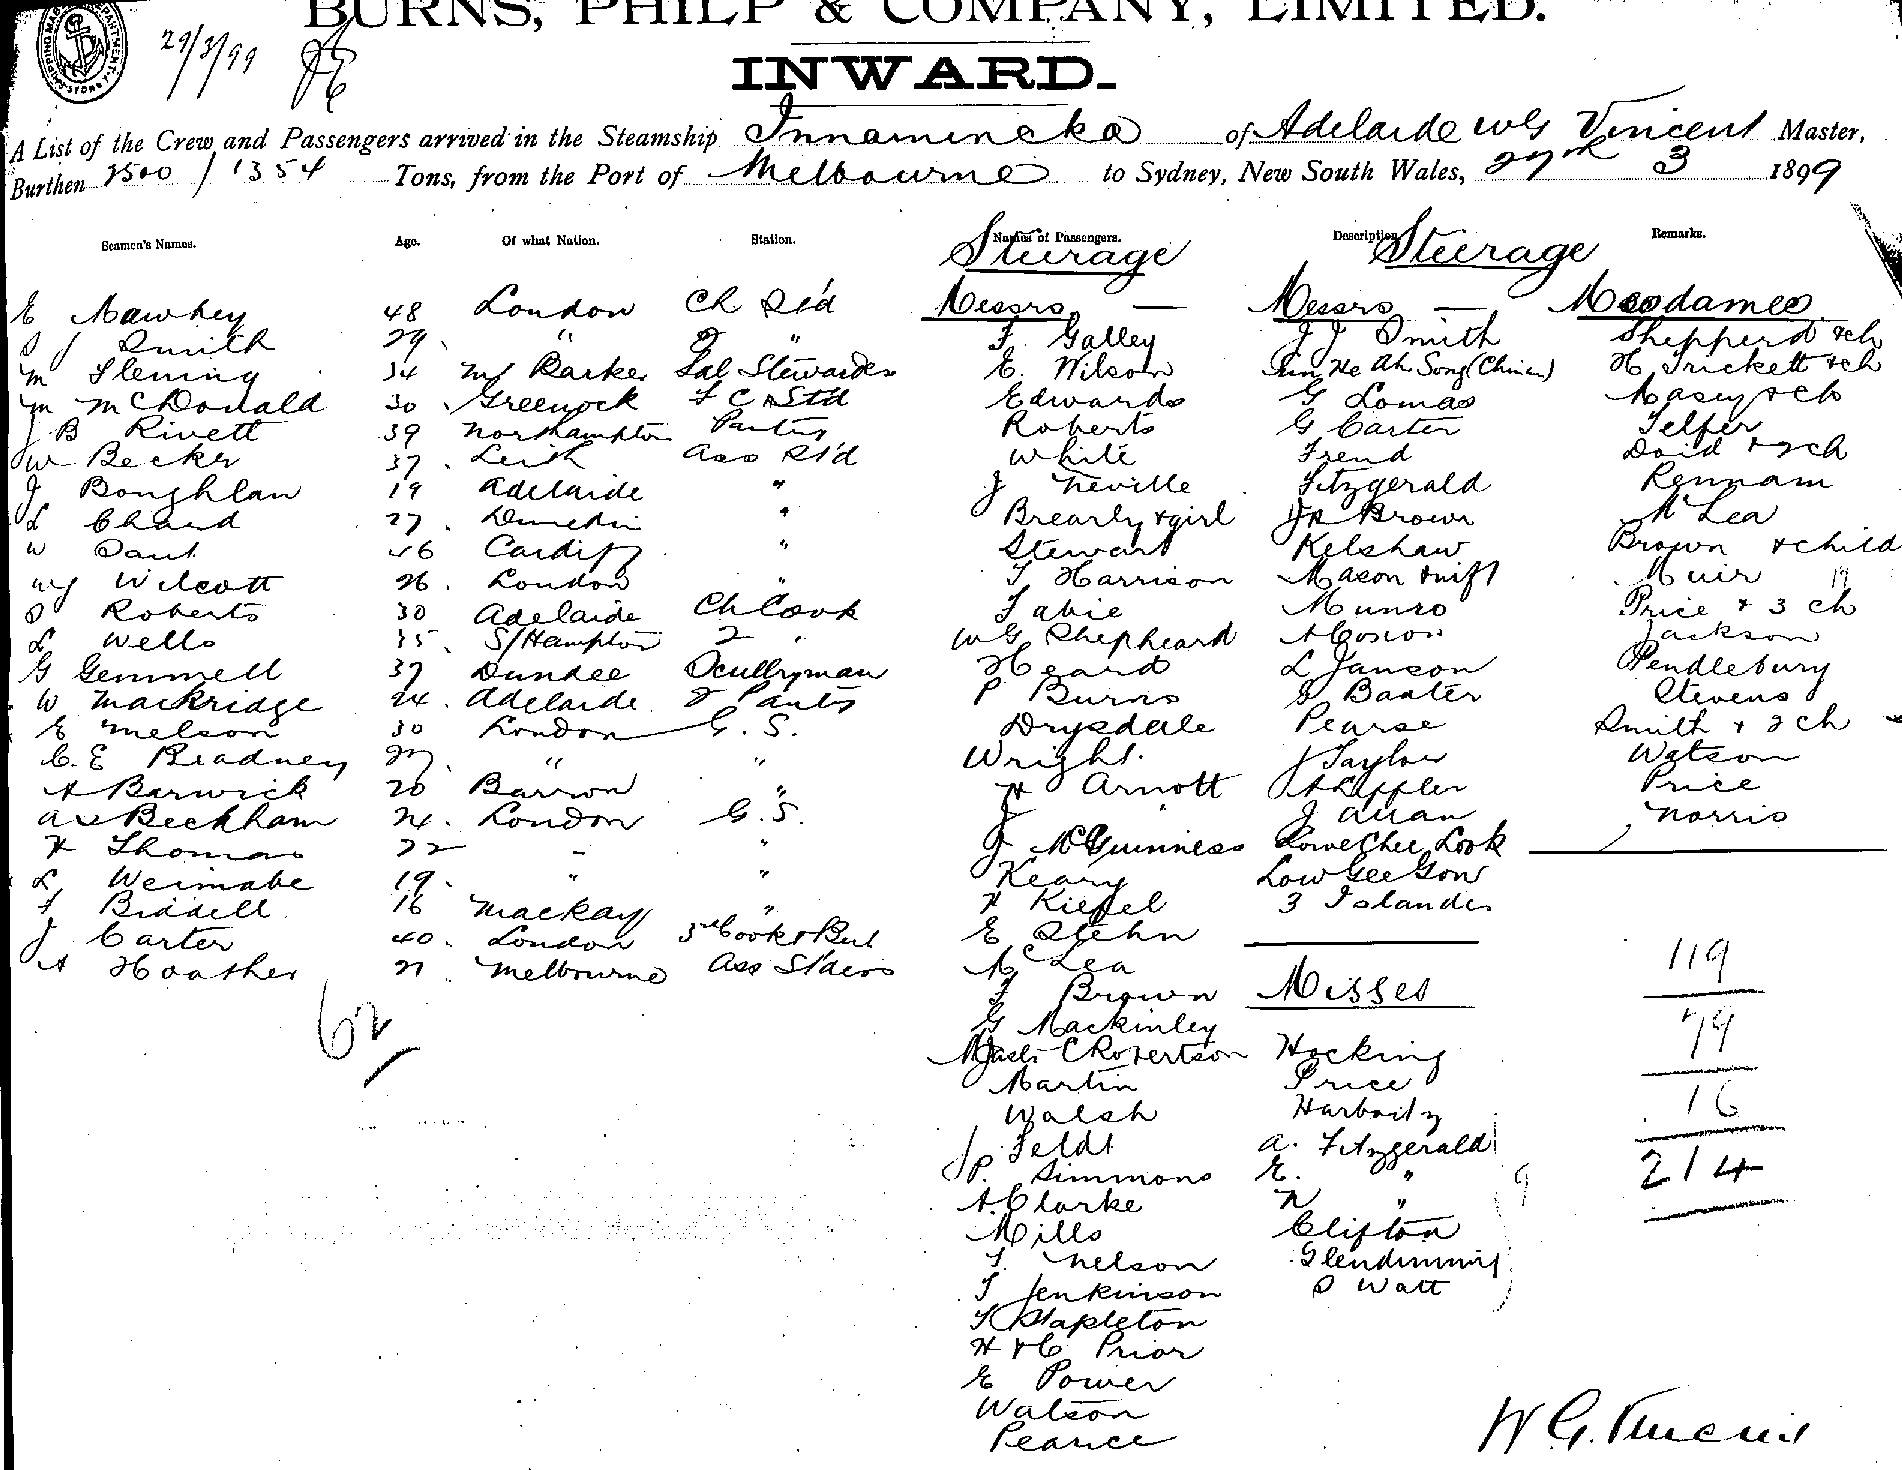 BURNS, PHILP & COMPANY, LIMITED.
29/3/99
INWARD.
A List of the Crew and Passengers arrived in the Steamship Innamincka of Adelaide WG Vincent Master,
Burthen 2500 / 1354 Tons, from the Port of Melbourne to Sydney, New South Wales, 27th 3 1899
Seamen's Names. Age. Of what Nation. Station. Names of Passengers. Description Remarks.
Steerage Steerage
E Mawhey 48 London Ch St'd
Smith 29 " 2 "
M Fleming 34 Barker Sal Stewardes
M McDonald 30 Greenock F C Std
J B Rivett 39 Northampton Pantry
W Becker 37 Leith Ass St'd
J Boughlan 19 Adelaide "
L Chard 27 Dunedin "
W 46 Cardiff "
WJ Wilcott 26 London "
Roberts 30 Adelaide Ch Cook
L Wells 35 S/Hampton 2 "
G Gemmell 37 Dundee Scullryman
W Mackridge 24 Adelaide 2 Pantry
E Melson 30 London G. S.
C. E Bradney 27 " "
A Barwick 20 Barrow "
Beckham 24 London G. S.
H Thomas 22 " "
L Weimabe 19 " "
F Biddell 16 Mackay "
J Carter 40 London 3rd Cook & But
A Hoather 21 Melbourne Ass St'dess
62
Messrs —
F. Galley
E. Wilson
Edwards
Roberts
White
J Neville
Brearly & girl
Stewart
T Harrison
Fabie
WG Shepheard
Heard
P Burns
Drysdale
Wright.
H Arnott
J "
J McGuinness
Keary
H Kieffel
E Stehn
McLea
F Brown
G Mackinley
C Robertson
Martin
Walsh
Feldt
P. Simmons
A. Clarke
Mills
T. Nelson
T Jenkinson
Stapleton
H & C Prior
E Power
Watson
Pearce
Messrs —
J J Smith
Sun He Ah Song (Chinese)
G Lomas
G Carter
Frend
Fitzgerald
Jn Brown
Kelshaw
Mason & wife
Munro
L Janson
G Baxter
Pearse
J Taylor
J Allan
Lowe Chee Look
Low Gee Gow
3 Islander
Misses
Hocking
Price
A. Fitzgerald
E. "
N "
Clifton
S Watt
9
Mesdames
Shepperd & ch
H Trickett & ch
Masey & ch
Telfer
Doid & 2 ch
Rennam
McLea
Brown & child
Muir
Price & 3 ch
Jackson
Pendlebury
Stevens
Smith & 2 ch
Watson
Price
Norris
119
79
16
214
W G. Vincent